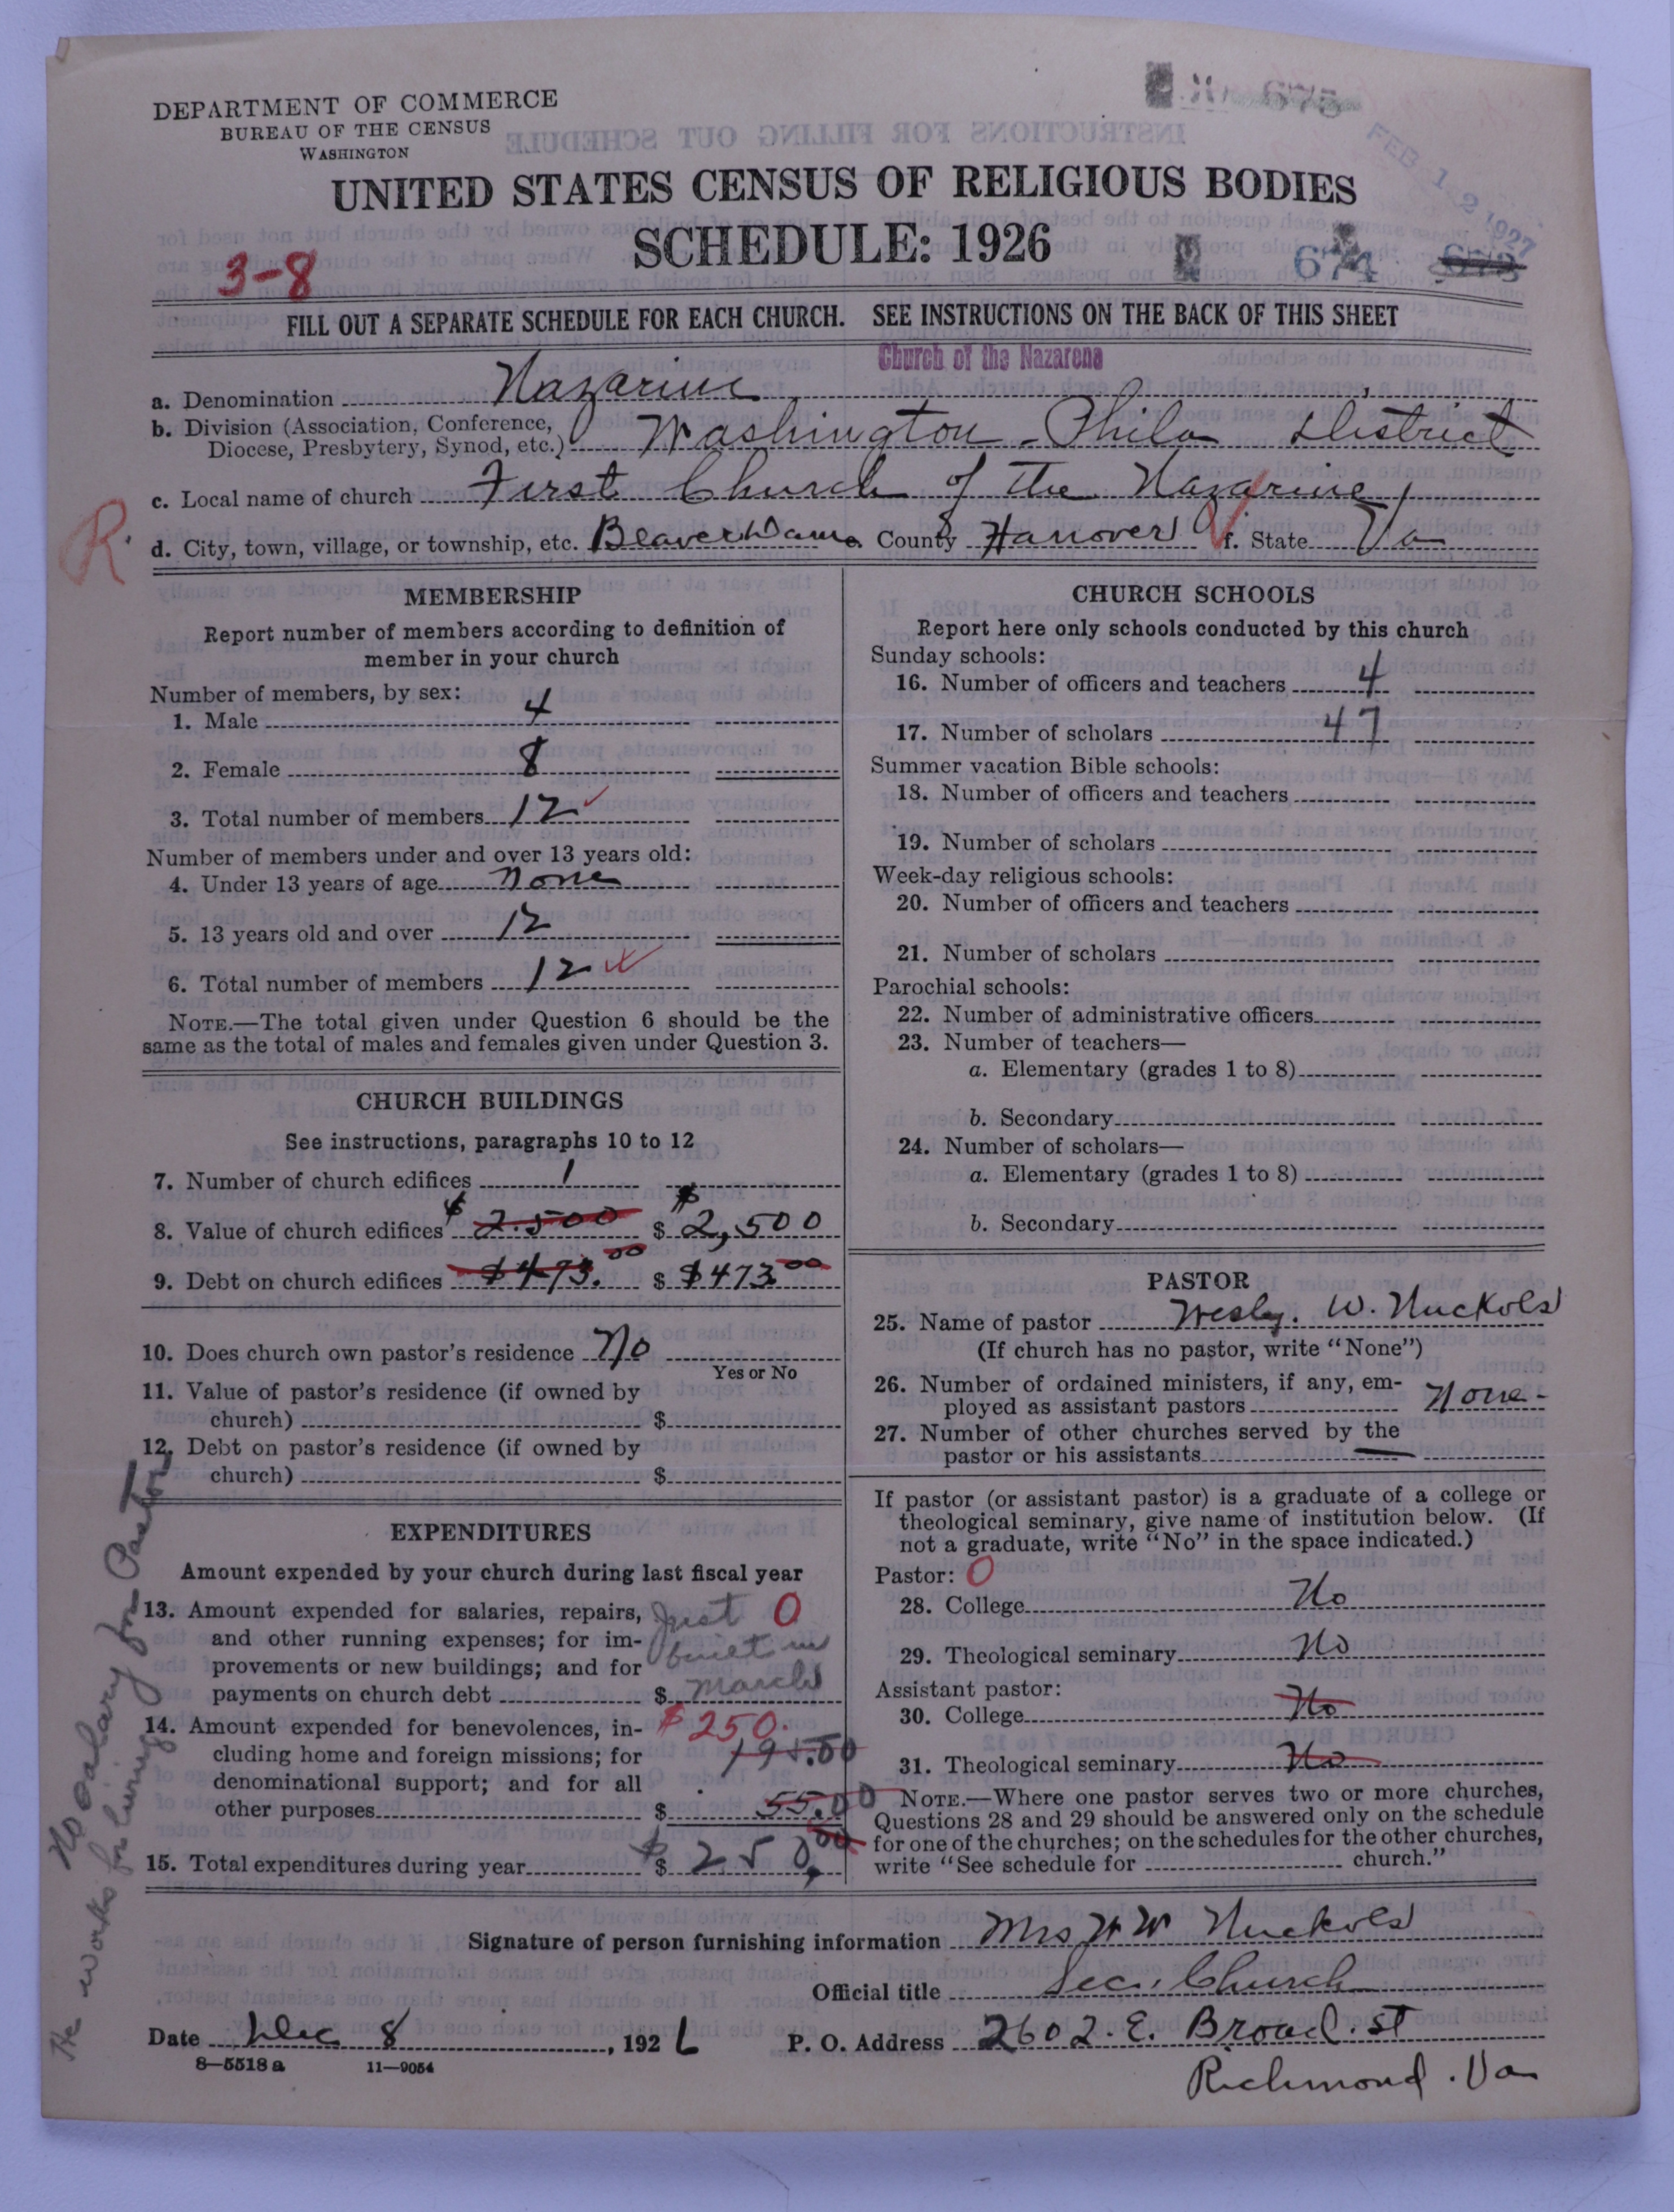 DEPARTMENT OF COMMERCE
BUREAU OF THE CENSUS
WASHINGTON
675
FEB 12 1927
UNITED STATES CENSUS OF RELIGIOUS BODIES
SCHEDULE: 1926
3-8
674 673
FILL OUT A SEPARATE SCHEDULE FOR EACH CHURCH. SEE INSTRUCTIONS ON THE BACK OF THIS SHEET
Church of the Nazarene
a. Denomination Nazarine
b. Division (Association, Conference,
Diocese, Presbytery, Synod, etc.) Washington-Phila District
c. Local name of church First Church of the Nazarine
R.
d. City, town, village, or township, etc. Beaver Dam e. County Hanover f. State Va
MEMBERSHIP
Report number of members according to definition of
member in your church
Number of members, by sex:
1. Male 4
2. Female 8
3. Total number of members 12
Number of members under and over 13 years old:
4. Under 13 years of age none
5. 13 years old and over 12
6. Total number of members 12
NOTE.—The total given under Question 6 should be the
same as the total of males and females given under Question 3.
CHURCH BUILDINGS
See instructions, paragraphs 10 to 12
7. Number of church edifices 1
8. Value of church edifices $ 2.500 $ $ 2,500
9. Debt on church edifices $473.00 $ $473 00
10. Does church own pastor's residence No
Yes or No
11. Value of pastor's residence (if owned by
church) $
12. Debt on pastor's residence (if owned by
church) $
EXPENDITURES
Amount expended by your church during last fiscal year
13. Amount expended for salaries, repairs, Just 0
and other running expenses; for im- built in
provements or new buildings; and for
payments on church debt $ March
14. Amount expended for benevolences, in- $250.
cluding home and foreign missions; for 195.00
denominational support; and for all
other purposes $ 55.00
15. Total expenditures during year $ $ 250.00
No salary for Pastor
He works for living
CHURCH SCHOOLS
Report here only schools conducted by this church
Sunday schools:
16. Number of officers and teachers 4
17. Number of scholars 47
Summer vacation Bible schools:
18. Number of officers and teachers
19. Number of scholars
Week-day religious schools:
20. Number of officers and teachers
21. Number of scholars
Parochial schools:
22. Number of administrative officers
23. Number of teachers—
a. Elementary (grades 1 to 8)
b. Secondary
24. Number of scholars—
a. Elementary (grades 1 to 8)
b. Secondary
PASTOR
25. Name of pastor Wesley. W. Nuckols
(If church has no pastor, write "None")
26. Number of ordained ministers, if any, em-
ployed as assistant pastors None-
27. Number of other churches served by the
pastor or his assistants —
If pastor (or assistant pastor) is a graduate of a college or
theological seminary, give name of institution below. (If
not a graduate, write "No" in the space indicated.)
Pastor: 0
28. College No
29. Theological seminary No
Assistant pastor:
30. College No
31. Theological seminary No
NOTE.—Where one pastor serves two or more churches,
Questions 28 and 29 should be answered only on the schedule
for one of the churches; on the schedules for the other churches,
write "See schedule for church."
Signature of person furnishing information Mrs W W Nuckols
Official title Sec. Church
Date Dec 8, 1926 P. O. Address 2602. E. Broad. St
8-5518a 11-9054
Richmond. Va